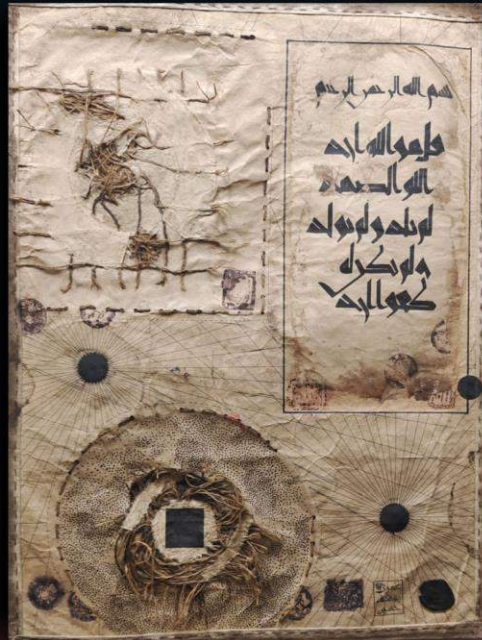 بسم الله الرحمن الرحيم
قل هو الله احد
الله الصمد
لم يلد ولم يولد
ولم يكن له
كفوا احد